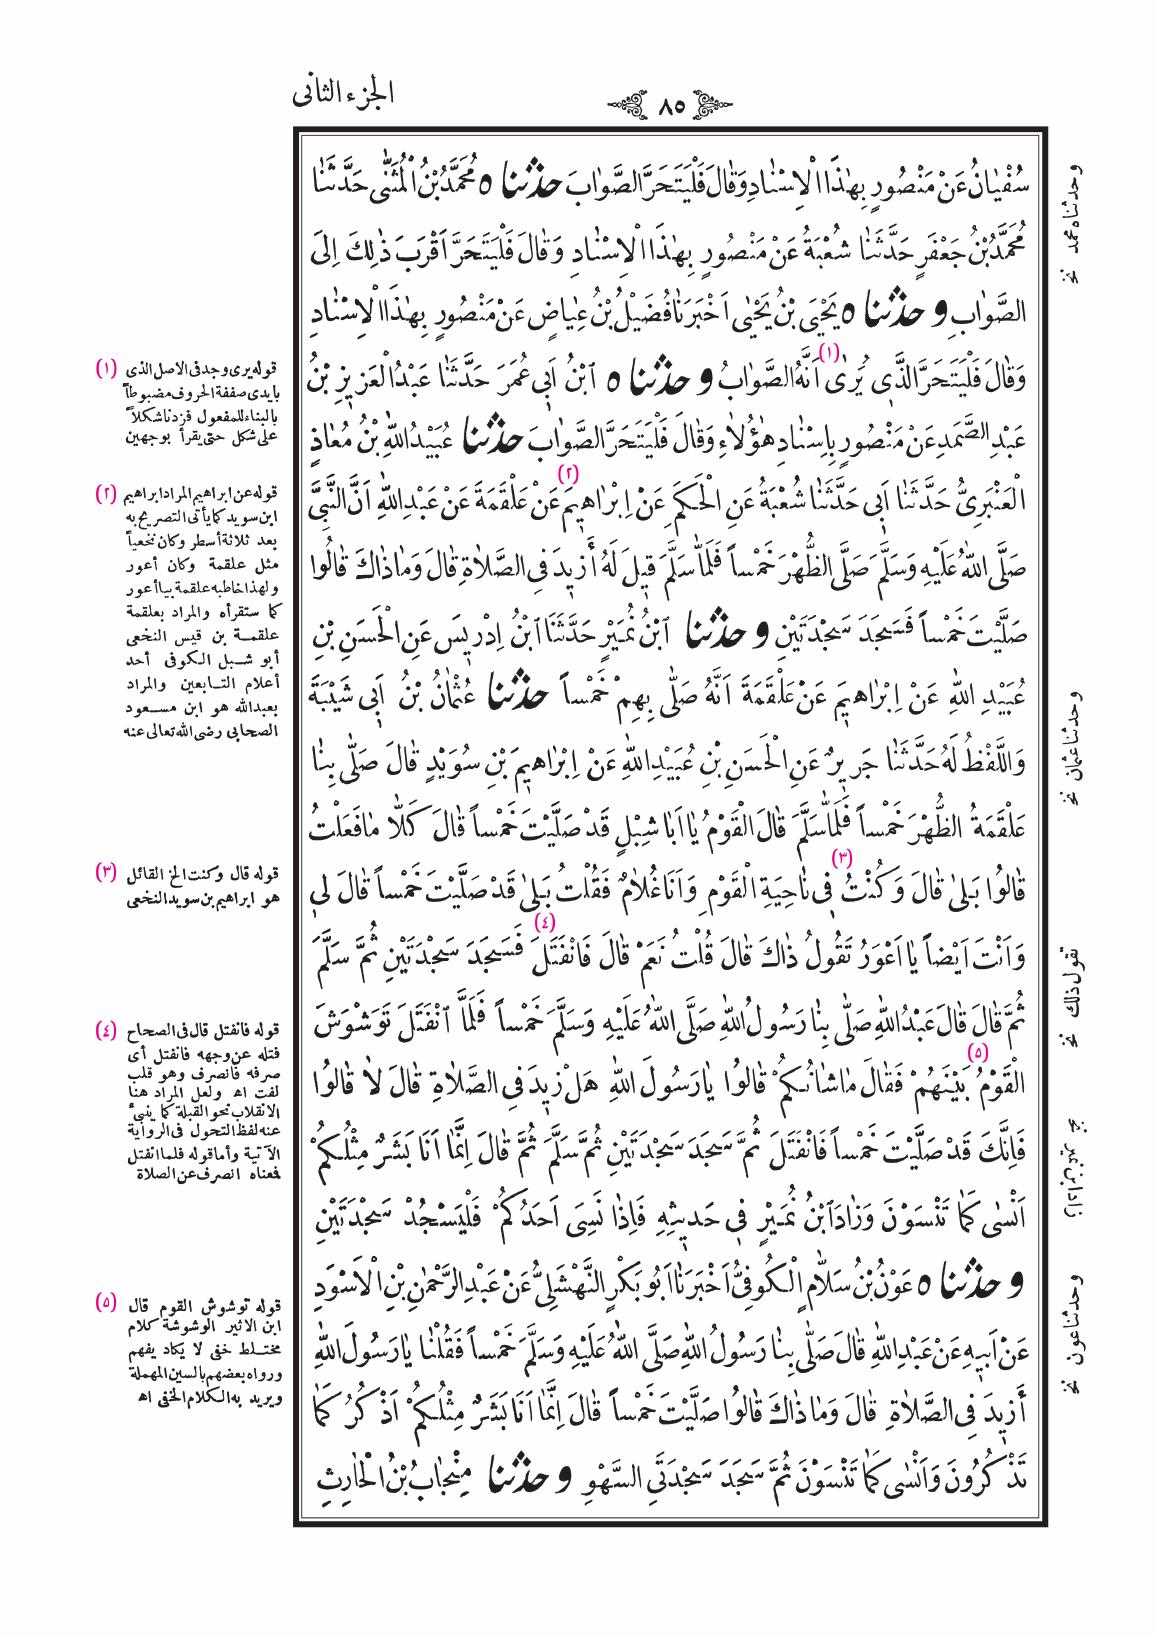 الجزء الثانى
٨٥
سُفْيٰانُ عَنْ مَنْصُورٍ بِهٰذَا الْاِسْنٰادِ وَقٰالَ فَلْيَتَحَرَّ الصَّوٰابَ حَدَّثَنٰاه مُحَمَّدُ بْنُ الْمُثَنّٰى حَدَّثَنٰا
مُحَمَّدُ بْنُ جَعْفَرٍ حَدَّثَنٰا شُعْبَةُ عَنْ مَنْصُورٍ بِهٰذَا الْاِسْنٰادِ وَقٰالَ فَلْيَتَحَرَّ اَقْرَبَ ذٰلِكَ اِلَى
الصَّوٰابِ وحَدَّثَنٰاه يَحْيَى بْنُ يَحْيٰى اَخْبَرَنٰا فُضَيْلُ بْنُ عِيٰاضٍ عَنْ مَنْصُورٍ بِهٰذَا الْاِسْنٰادِ
وَقٰالَ فَلْيَتَحَرَّ الَّذِى يُرٰى (١) اَنَّهُ الصَّوٰابُ وحَدَّثَنٰاه ابْنُ اَبِى عُمَرَ حَدَّثَنٰا عَبْدُ الْعَزِيزِ بْنُ
عَبْدِ الصَّمَدِ عَنْ مَنْصُورٍ بِاِسْنٰادِ هٰؤُلٰاءِ وَقٰالَ فَلْيَتَحَرَّ الصَّوٰابَ حَدَّثَنٰا عُبَيْدُ اللّٰهِ بْنُ مُعٰاذٍ
الْعَنْبَرِىُّ حَدَّثَنٰا اَبِى حَدَّثَنٰا شُعْبَةُ عَنِ الْحَكَمِ عَنْ اِبْرٰاهِيمَ (٢) عَنْ عَلْقَمَةَ عَنْ عَبْدِ اللّٰهِ اَنَّ النَّبِىَّ
صَلَّى اللّٰهُ عَلَيْهِ وَسَلَّمَ صَلَّى الظُّهْرَ خَمْساً فَلَمّٰا سَلَّمَ قِيلَ لَهُ أَزِيدَ فِى الصَّلٰاةِ قٰالَ وَمٰا ذٰاكَ قٰالُوا
صَلَّيْتَ خَمْساً فَسَجَدَ سَجْدَتَيْنِ وحَدَّثَنٰا ابْنُ نُمَيْرٍ حَدَّثَنَا ابْنُ اِدْرِيسَ عَنِ الْحَسَنِ بْنِ
عُبَيْدِ اللّٰهِ عَنْ اِبْرٰاهِيمَ عَنْ عَلْقَمَةَ اَنَّهُ صَلّٰى بِهِمْ خَمْساً حَدَّثَنٰا عُثْمٰانُ بْنُ اَبِى شَيْبَةَ
وَاللَّفْظُ لَهُ حَدَّثَنٰا جَرِيرٌ عَنِ الْحَسَنِ بْنِ عُبَيْدِ اللّٰهِ عَنْ اِبْرٰاهِيمَ بْنِ سُوَيْدٍ قٰالَ صَلّٰى بِنٰا
عَلْقَمَةُ الظُّهْرَ خَمْساً فَلَمّٰا سَلَّمَ قٰالَ الْقَوْمُ يٰا اَبٰا شِبْلٍ قَدْ صَلَّيْتَ خَمْساً قٰالَ كَلّٰا مٰا فَعَلْتُ
قٰالُوا بَلىٰ قٰالَ وَكُنْتُ (٣) فِى نٰاحِيَةِ الْقَوْمِ وَاَنَا غُلٰامٌ فَقُلْتُ بَلىٰ قَدْ صَلَّيْتَ خَمْساً قٰالَ لِى
وَاَنْتَ اَيْضاً يٰا اَعْوَرُ تَقُولُ ذٰاكَ قٰالَ قُلْتُ نَعَمْ قٰالَ فَانْفَتَلَ (٤) فَسَجَدَ سَجْدَتَيْنِ ثُمَّ سَلَّمَ
ثُمَّ قٰالَ قٰالَ عَبْدُ اللّٰهِ صَلّٰى بِنٰا رَسُولُ اللّٰهِ صَلَّى اللّٰهُ عَلَيْهِ وَسَلَّمَ خَمْساً فَلَمَّا انْفَتَلَ تَوَشْوَشَ
الْقَوْمُ (٥) بَيْنَهُمْ فَقٰالَ مٰا شَأنُكُمْ قٰالُوا يٰا رَسُولَ اللّٰهِ هَلْ زِيدَ فِى الصَّلٰاةِ قٰالَ لاٰ قٰالُوا
فَاِنَّكَ قَدْ صَلَّيْتَ خَمْساً فَانْفَتَلَ ثُمَّ سَجَدَ سَجْدَتَيْنِ ثُمَّ سَلَّمَ ثُمَّ قٰالَ اِنَّمٰا اَنَا بَشَرٌ مِثْلُكُمْ
اَنْسٰى كَمٰا تَنْسَوْنَ وَزٰادَ ابْنُ نُمَيْرٍ فِى حَدِيثِهِ فَاِذٰا نَسِىَ اَحَدُكُمْ فَلْيَسْجُدْ سَجْدَتَيْنِ
وحَدَّثَنٰاه عَوْنُ بْنُ سَلّٰامٍ الْكُوفِىُّ اَخْبَرَنٰا اَبُو بَكْرٍ النَّهْشَلِىُّ عَنْ عَبْدِ الرَّحْمٰنِ بْنِ الْاَسْوَدِ
عَنْ اَبِيهِ عَنْ عَبْدِ اللّٰهِ قٰالَ صَلّٰى بِنٰا رَسُولُ اللّٰهِ صَلَّى اللّٰهُ عَلَيْهِ وَسَلَّمَ خَمْساً فَقُلْنٰا يٰا رَسُولَ اللّٰهِ
أَزِيدَ فِى الصَّلٰاةِ قٰالَ وَمٰا ذٰاكَ قٰالُوا صَلَّيْتَ خَمْساً قٰالَ اِنَّمٰا اَنَا بَشَرٌ مِثْلُكُمْ اَذْكُرُ كَمٰا
تَذْكُرُونَ وَاَنْسٰى كَمٰا تَنْسَوْنَ ثُمَّ سَجَدَ سَجْدَتَىِ السَّهْوِ وحَدَّثَنٰا مِنْجٰابُ بْنُ الْحٰارِثِ
(١) قوله يرى وجد فى الاصل الذى
بايدى صففة الحروف مضبوطاً
بالبناء للمفعول فزدنا شكلاً
على شكل حتى يقرأ بوجهين
(٢) قوله عن ابراهيم المراد ابراهيم
ابن سويد كما يأتى التصريح به
بعد ثلاثة أسطر وكان نخعياً
مثل علقمة وكان أعور
ولهذا خاطبه علقمة بيا أعور
كما ستقرأه والمراد بعلقمة
علقمة بن قيس النخعى
أبو شبل الكوفى أحد
أعلام التابعين والمراد
بعبدالله هو ابن مسعود
الصحابى رضى الله تعالى عنه
(٣) قوله قال وكنت الخ القائل
هو ابراهيم بن سويد النخعى
(٤) قوله فانفتل قال فى الصحاح
فتله عن وجهه فانفتل أى
صرفه فانصرف وهو قلب
لفت اه ولعل المراد هنا
الانقلاب نحو القبلة كما ينبىء
عنه لفظ التحول فى الرواية
الآتية وأما قوله فلما انفتل
فمعناه انصرف عن الصلاة
(٥) قوله توشوش القوم قال
ابن الاثير الوشوشة كلام
مختلط خفى لا يكاد يفهم
ورواه بعضهم بالسين المهملة
ويريد به الكلام الخفى اه
وحدثناه محمد نخ
وحدثنا عثمان نخ
تقول ذلك نخ
وحدثنا عون نخ